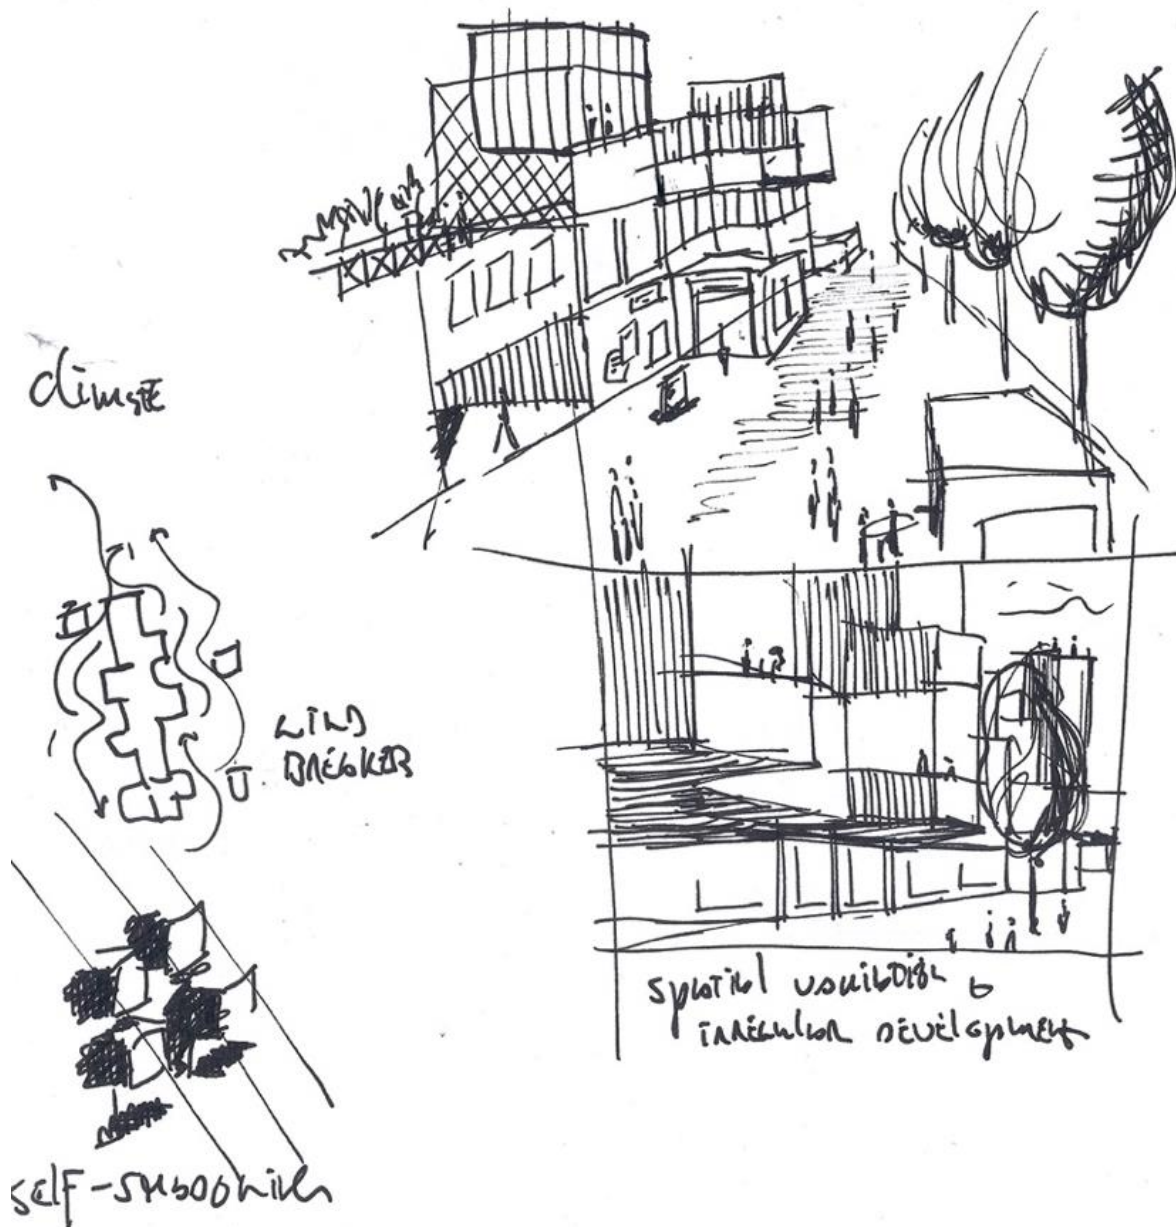 climate
WIND
BREAKER
SELF-SHADOWING
SPATIAL VARIATION &
IRREGULAR DEVELOPMENT